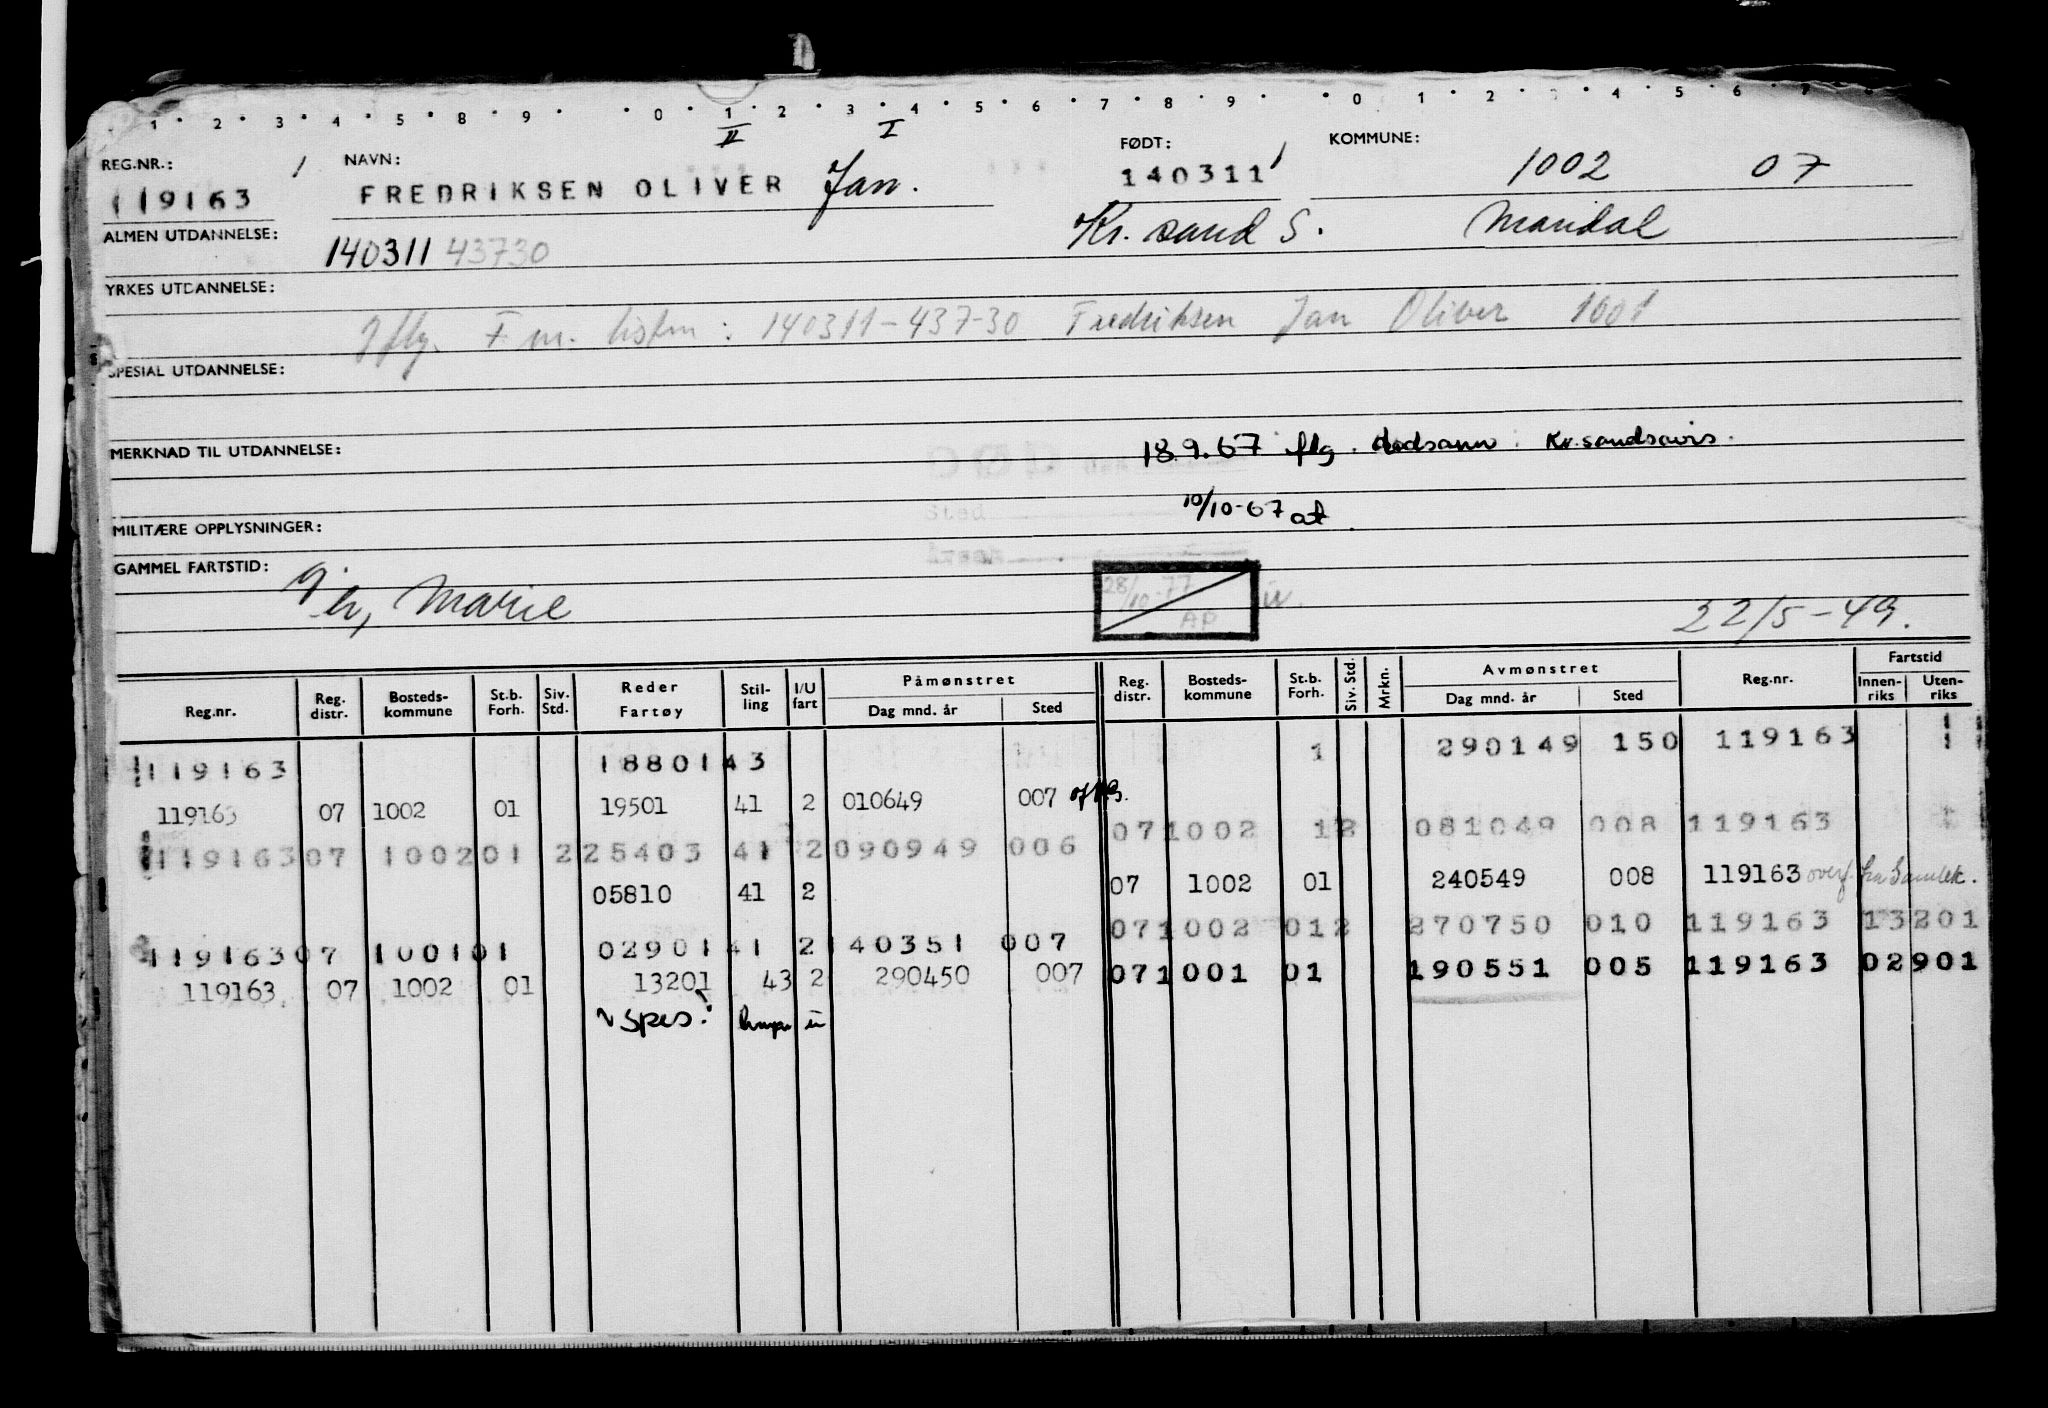 1 2 3 4 5 6 8 9 0 1 2 3 4 5 6 7 8 9 0 1 2 3 4 5 6 7
II I
REG.NR.: NAVN: FØDT: KOMMUNE:
119163 FREDRIKSEN OLIVER Jan. 140311 1002 07
ALMEN UTDANNELSE: 140311 43730 Kr. sand S. Mandal
YRKES UTDANNELSE:
Iflg. F.m. listen: 140311-437-30 Fredriksen Jan Oliver 1001
SPESIAL UTDANNELSE:
MERKNAD TIL UTDANNELSE: 18.9.67 iflg. dødsann. Kr.sandsavis.
MILITÆRE OPPLYSNINGER: 10/10-67 at.
GAMMEL FARTSTID:
Marie 28/10-77 AP 22/5-49.
Reg.nr. Reg. distr. Bosteds-kommune St.b. Forh. Siv. Std. Reder Fartøy Stil-ling I/U fart Påmønstret Dag mnd. år Sted Reg. distr. Bosteds-kommune St.b. Forh. Siv. Std. Mrkn. Avmønstret Dag mnd. år Sted Reg.nr. Fartstid Innen-riks Uten-riks
119163 1880143 1 290149 150 119163
119163 07 1002 01 19501 41 2 010649 007
071002 12 081049 008 119163
11916307 100201 225403 41 2090949 006
05810 41 2 07 1002 01 240549 008 119163 overf. fra Samlek.
071002 012 270750 010 119163 13201
11916307 100101 0290141 2140351 007
119163 07 1002 01 13201 43 2 290450 007 071001 01 190551 005 119163 02901
Spes.